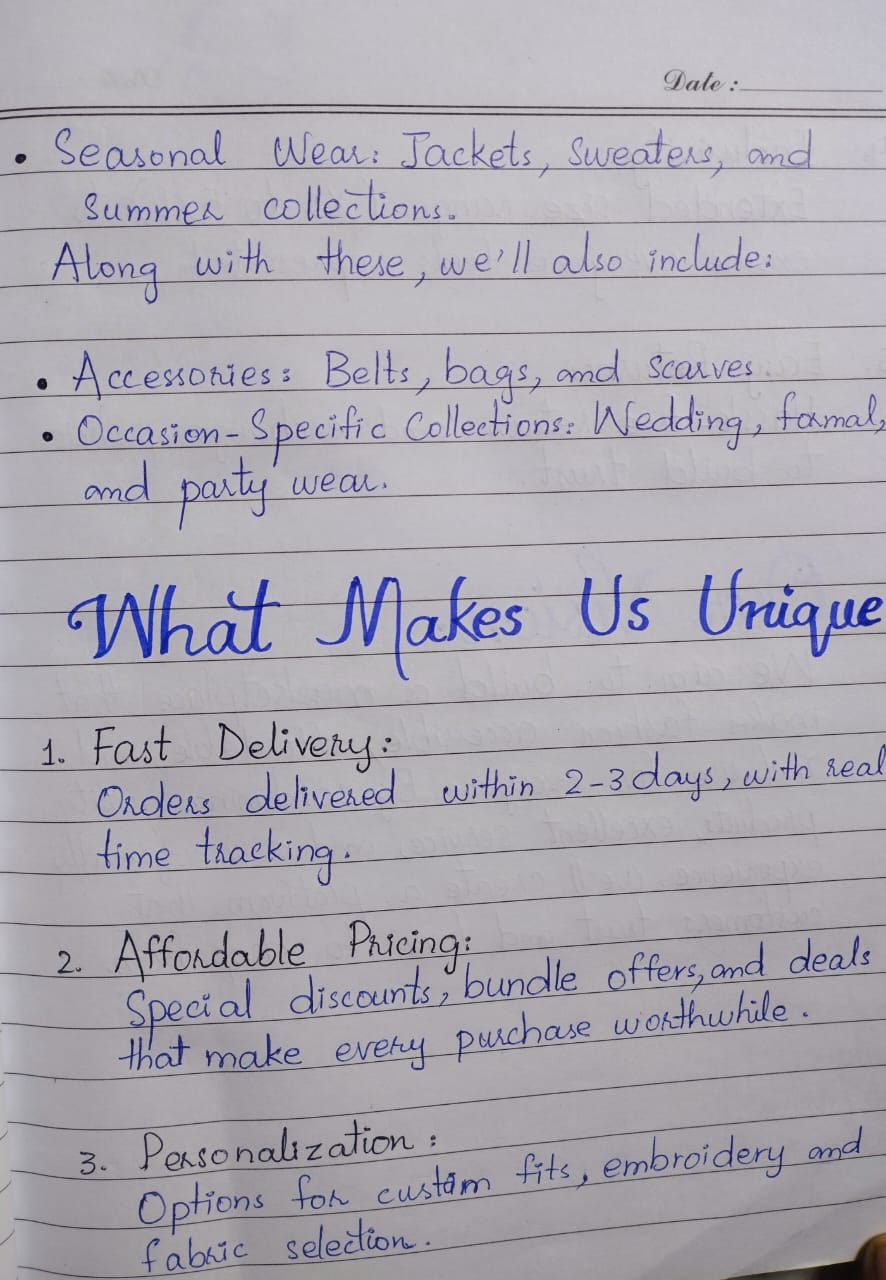 Date :
• Seasonal Wear: Jackets, Sweaters, and
Summer collections.
Along with these, we'll also include:
• Accessories: Belts, bags, and scarves.
• Occasion-Specific Collections: Wedding, formal,
and party wear.
What Makes Us Unique
1. Fast Delivery:
Orders delivered within 2-3 days, with real
time tracking.
2. Affordable Pricing:
Special discounts, bundle offers, and deals
that make every purchase worthwhile.
3. Personalization:
Options for custom fits, embroidery and
fabric selection.